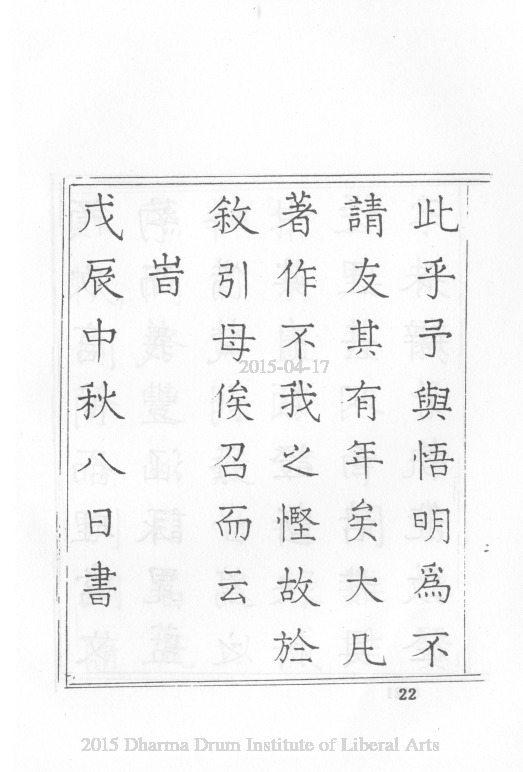 此乎予與悟明爲不
請友其有年矣大凡
著作不我之慳故於
敘引毋俟召而云
旹
戊辰中秋八日書
2015-04-17
22
2015 Dharma Drum Institute of Liberal Arts